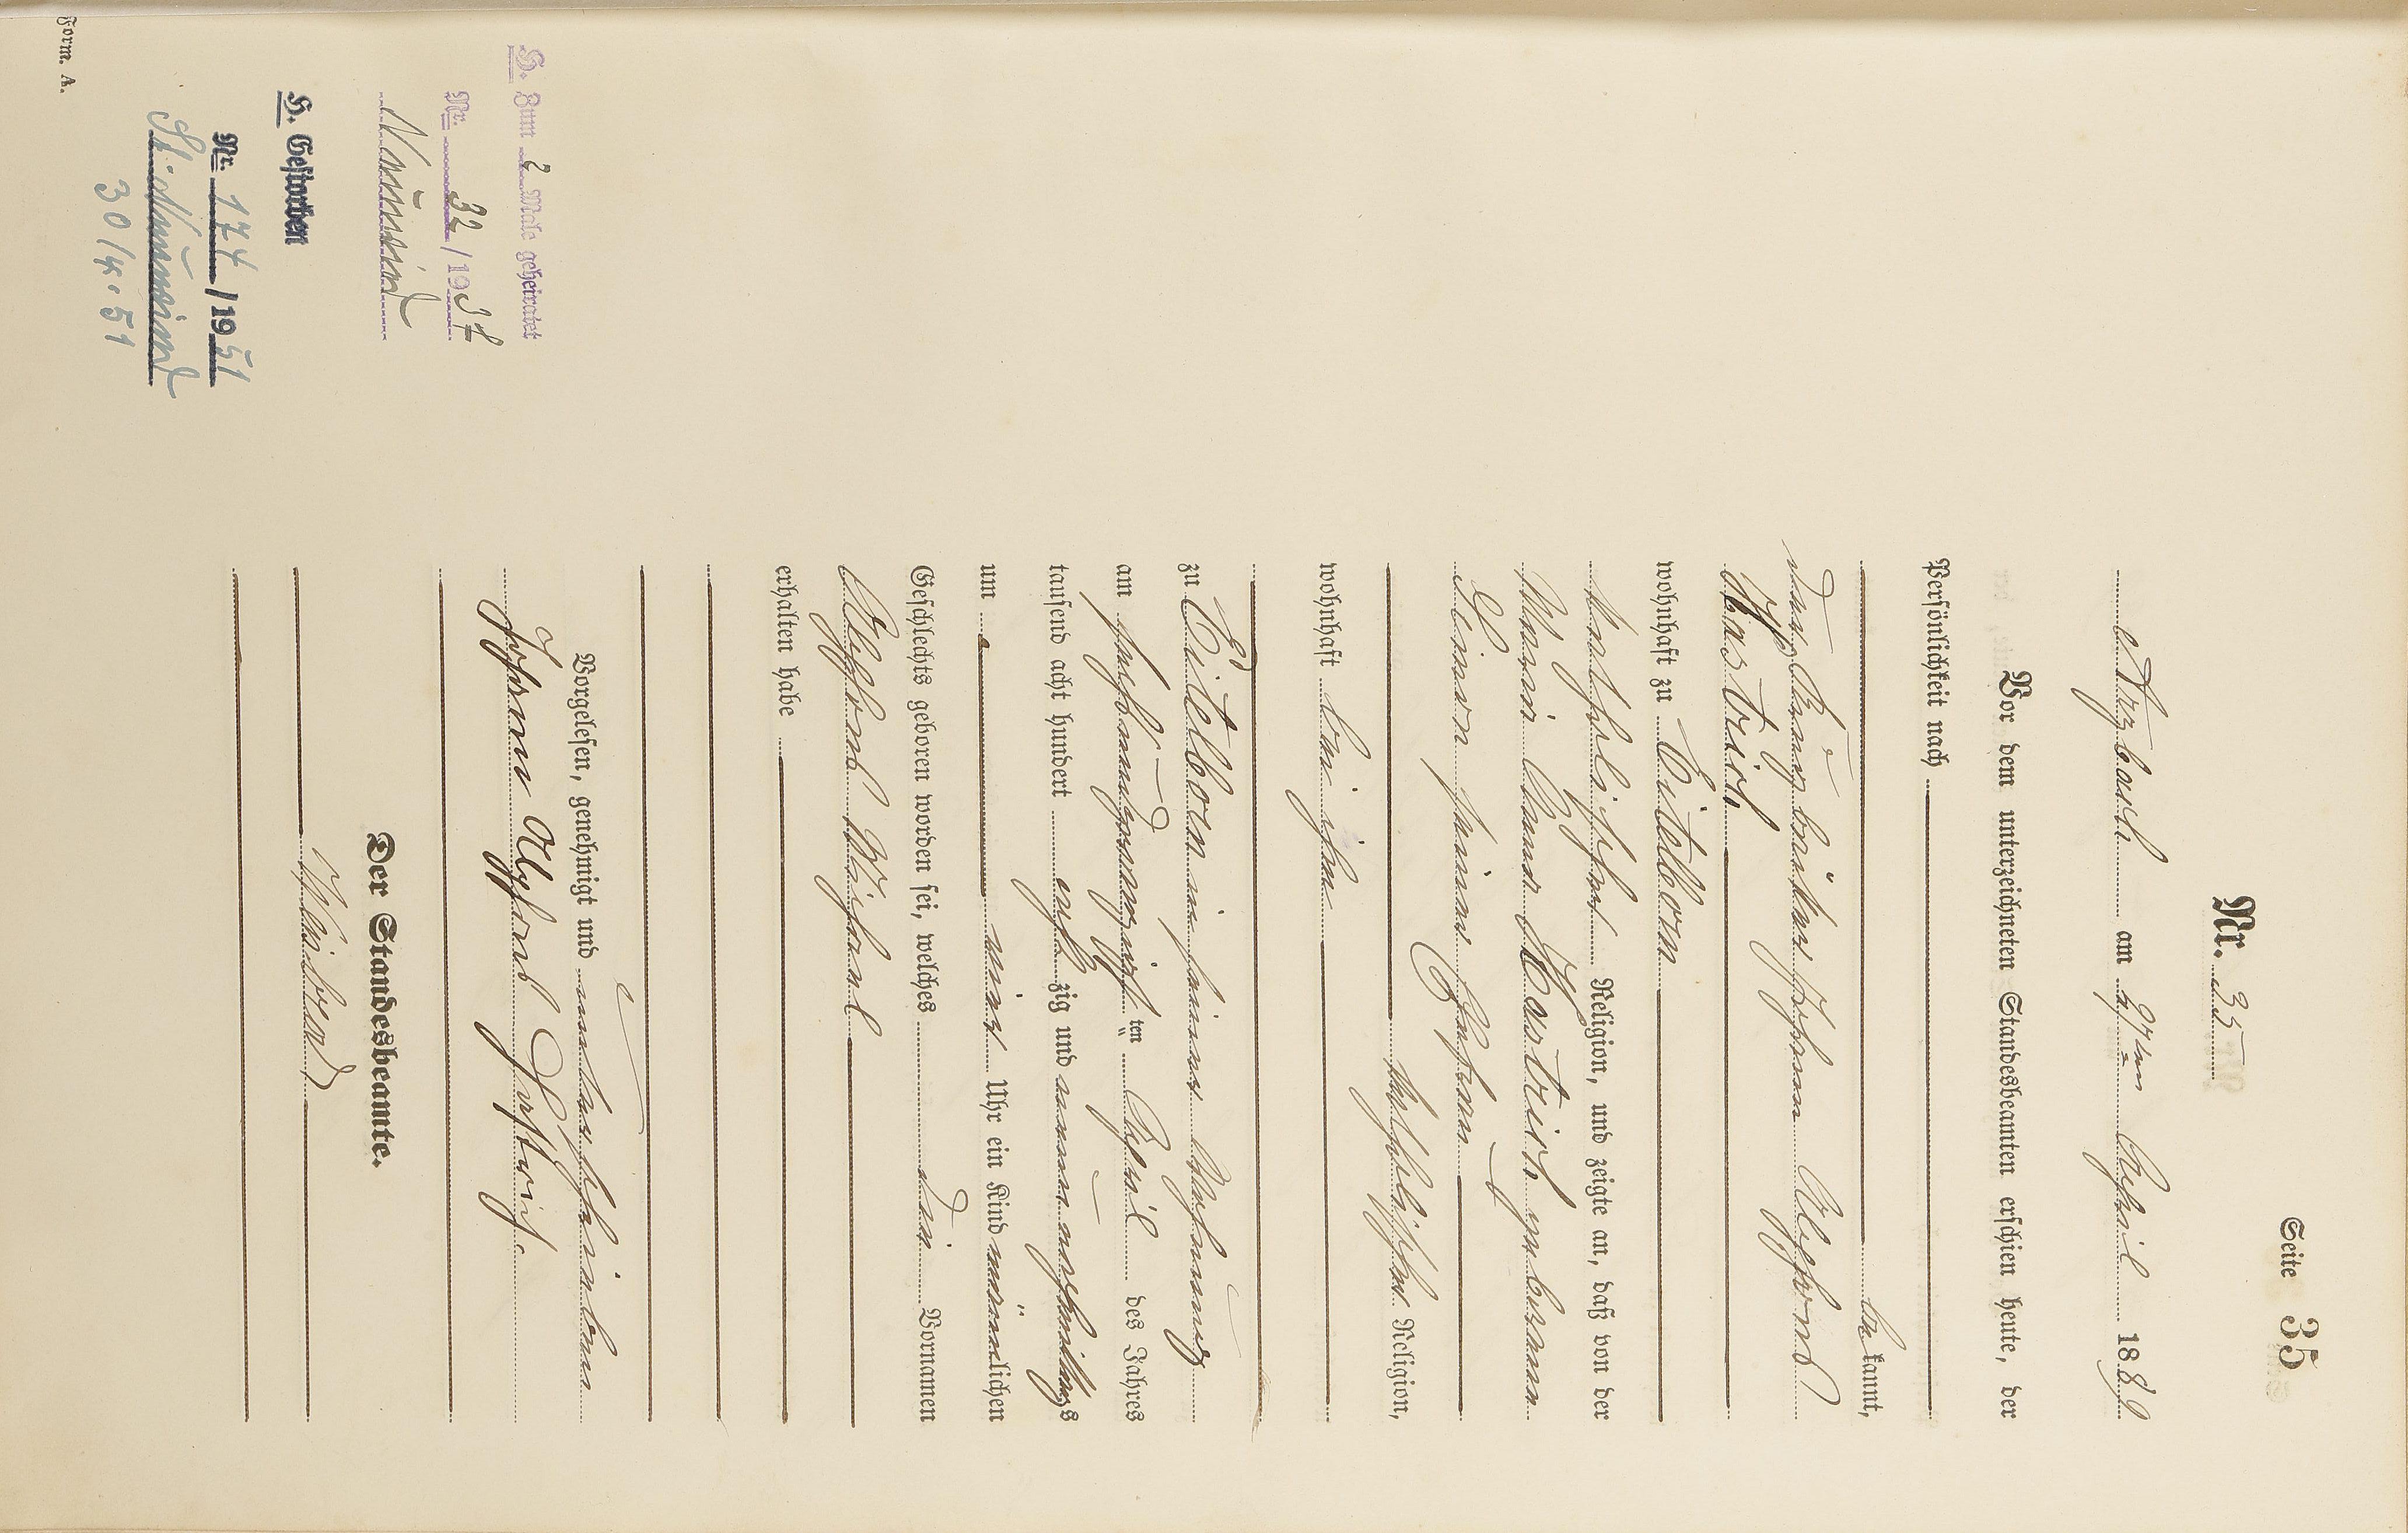 Seite 35
Nr. 35
Arzbach am 27ten April 1889
Vor dem unterzeichneten Standesbeamten erschien heute, der
Persönlichkeit nach
bekannt,
der Krugbäcker Johann Alfons
Hastrich
wohnhaft zu Eitelborn
katholischer Religion, und zeigte an, daß von der
Maria Anna Hastrich geborenen
Simon seiner Ehefrau
katholischer Religion,
wohnhaft bei ihm
zu Eitelborn in seiner Wohnung
am sechsundzwanzigsten April des Jahres
tausend acht hundert achtzig und neun nachmittags
um neun Uhr ein Kind männlichen
Geschlechts geboren worden sei, welches die Vornamen
Alfons Michael
erhalten habe
Vorgelesen, genehmigt und unterschrieben
Johann Alfons Hastrich.
Der Standesbeamte.
H. Zum 2 Male geheiratet
Nr. 32/1937
Neuwied
H. Gestorben
Nr. 174/1951
St. Neuwied
30/4.51
Form. A.